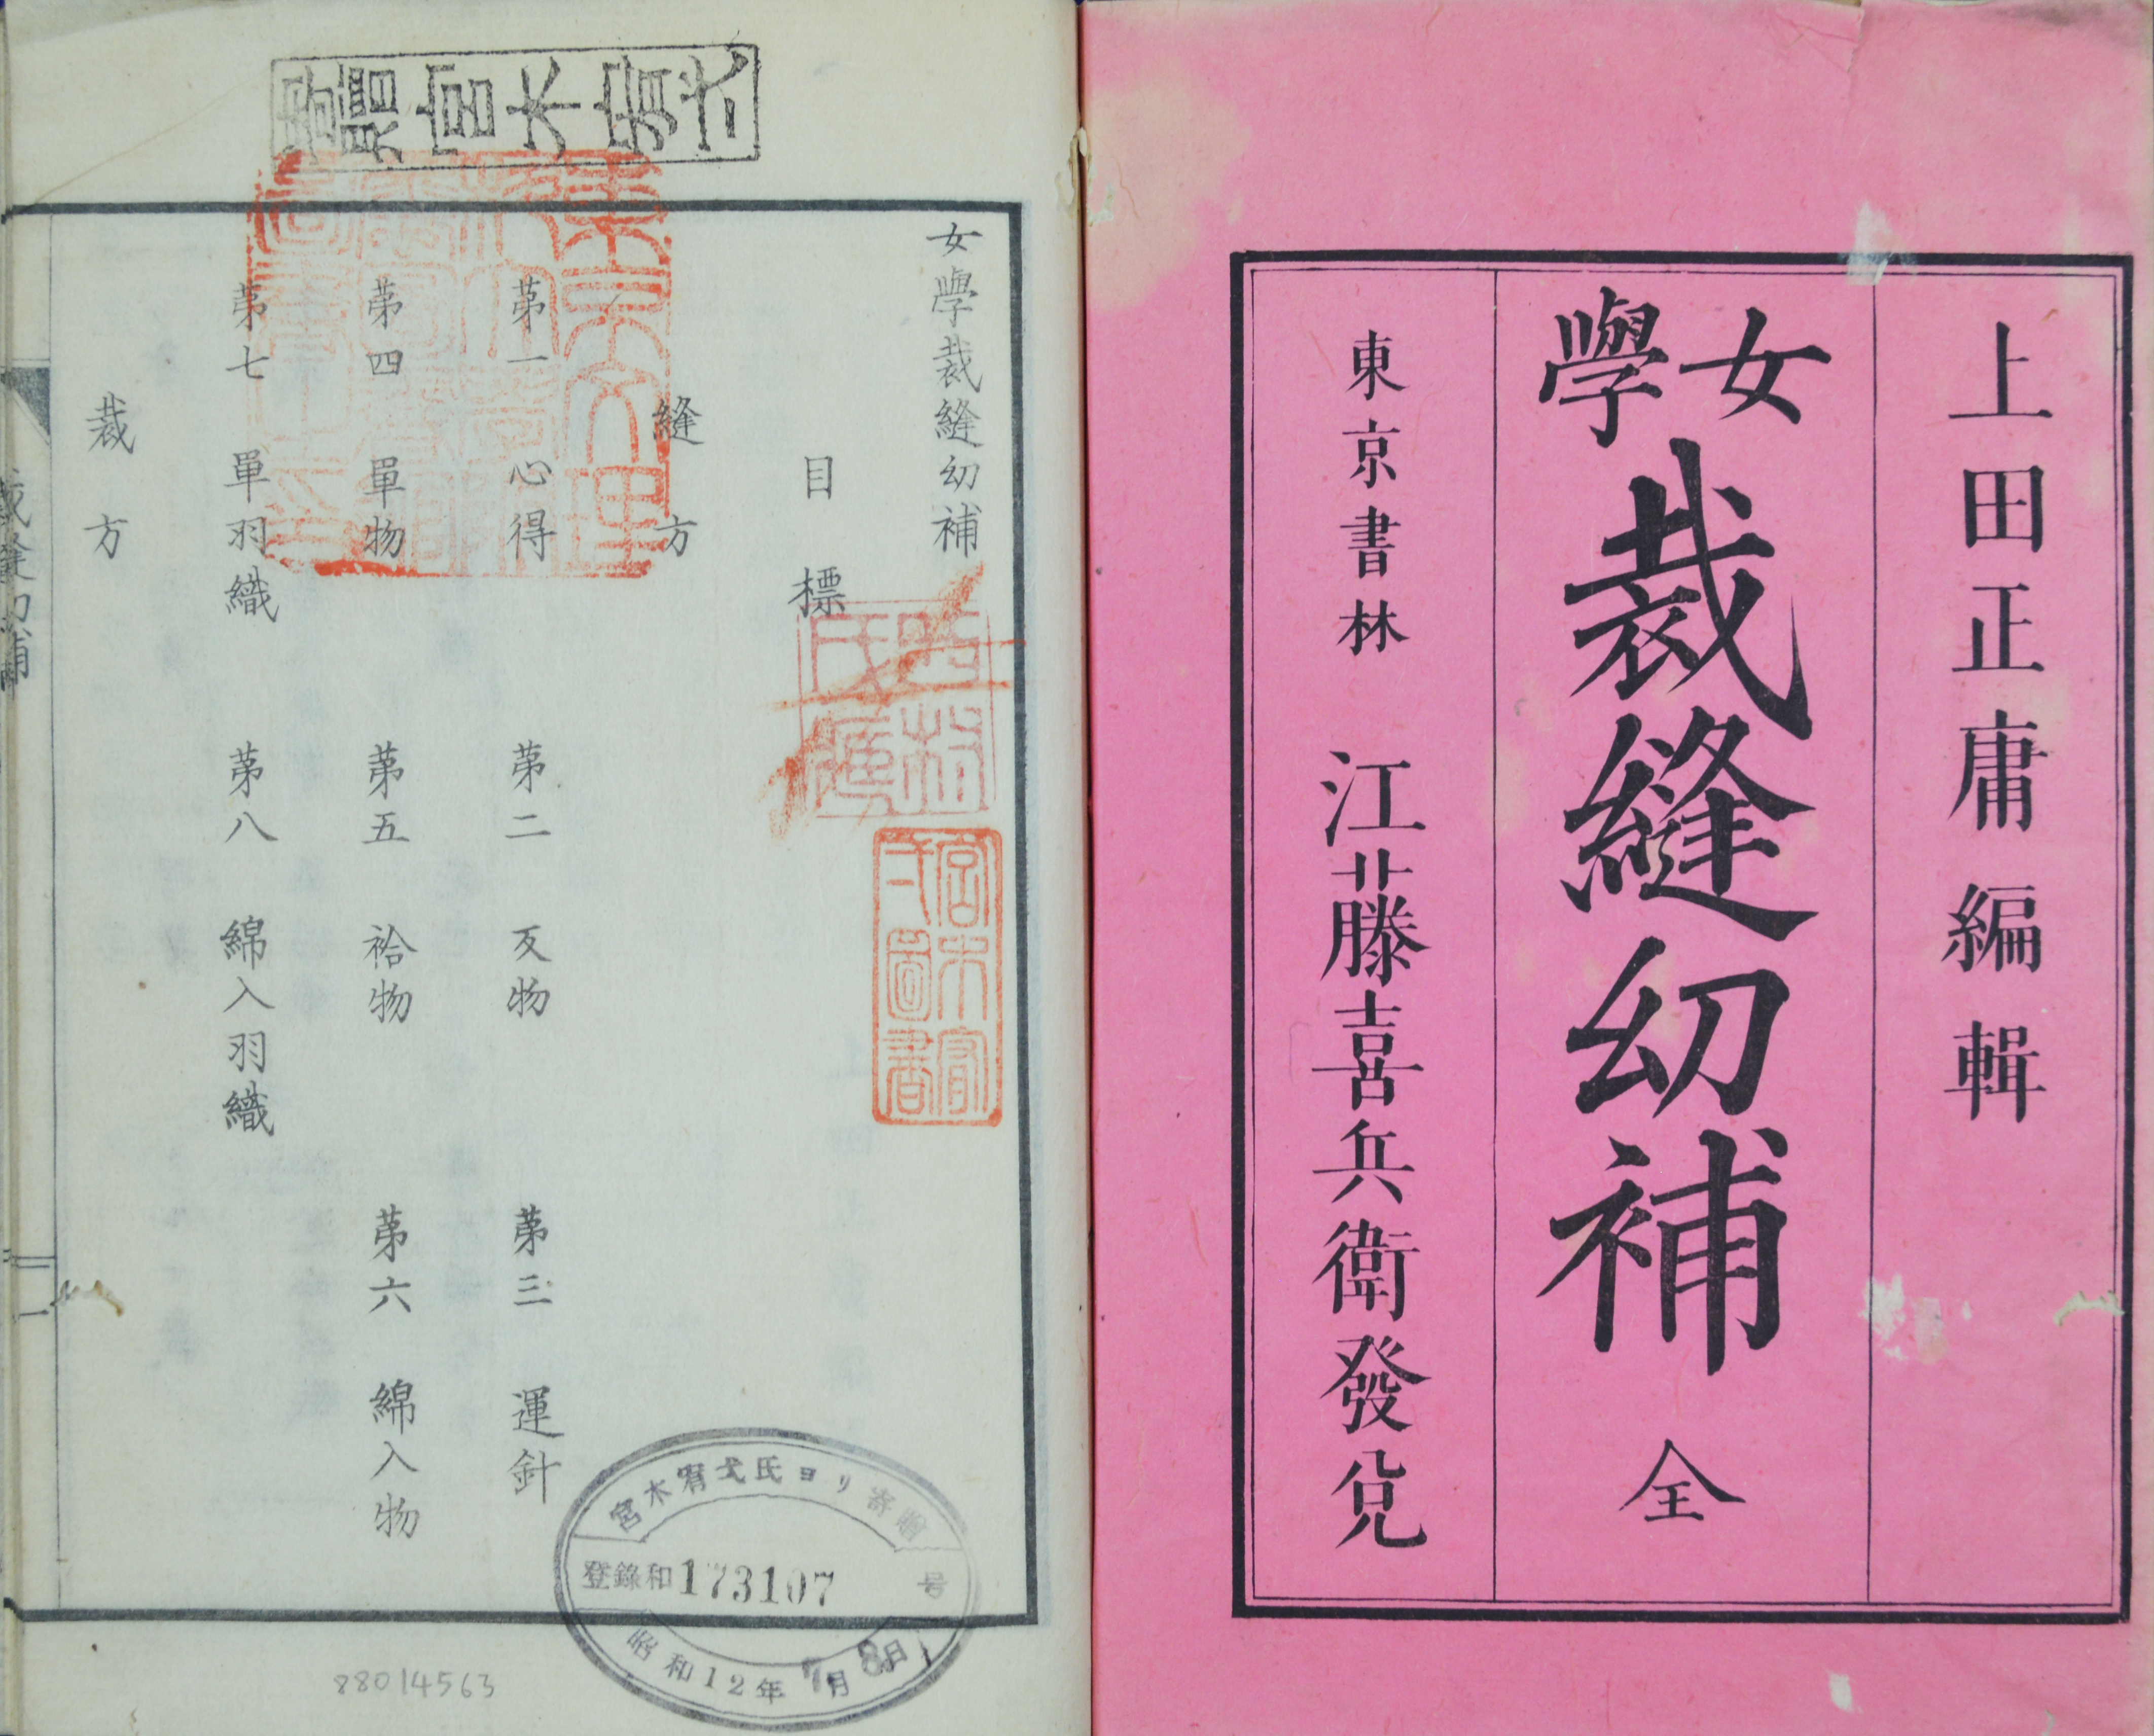 上田正庸編輯
女學裁縫幼補 全
東京書林 江藤喜兵衛發兌
女學裁縫幼補
目標
縫方
苐一 心得 苐二 反物 苐三 運針
苐四 單物 苐五 袷物 苐六 綿入物
苐七 單羽織 苐八 綿入羽織
裁方
裁縫幼補
一
宮木甯
弌圖書
宮木甯弌氏ヨリ寄贈
登錄和173107号
昭和12年7月8日
88014563